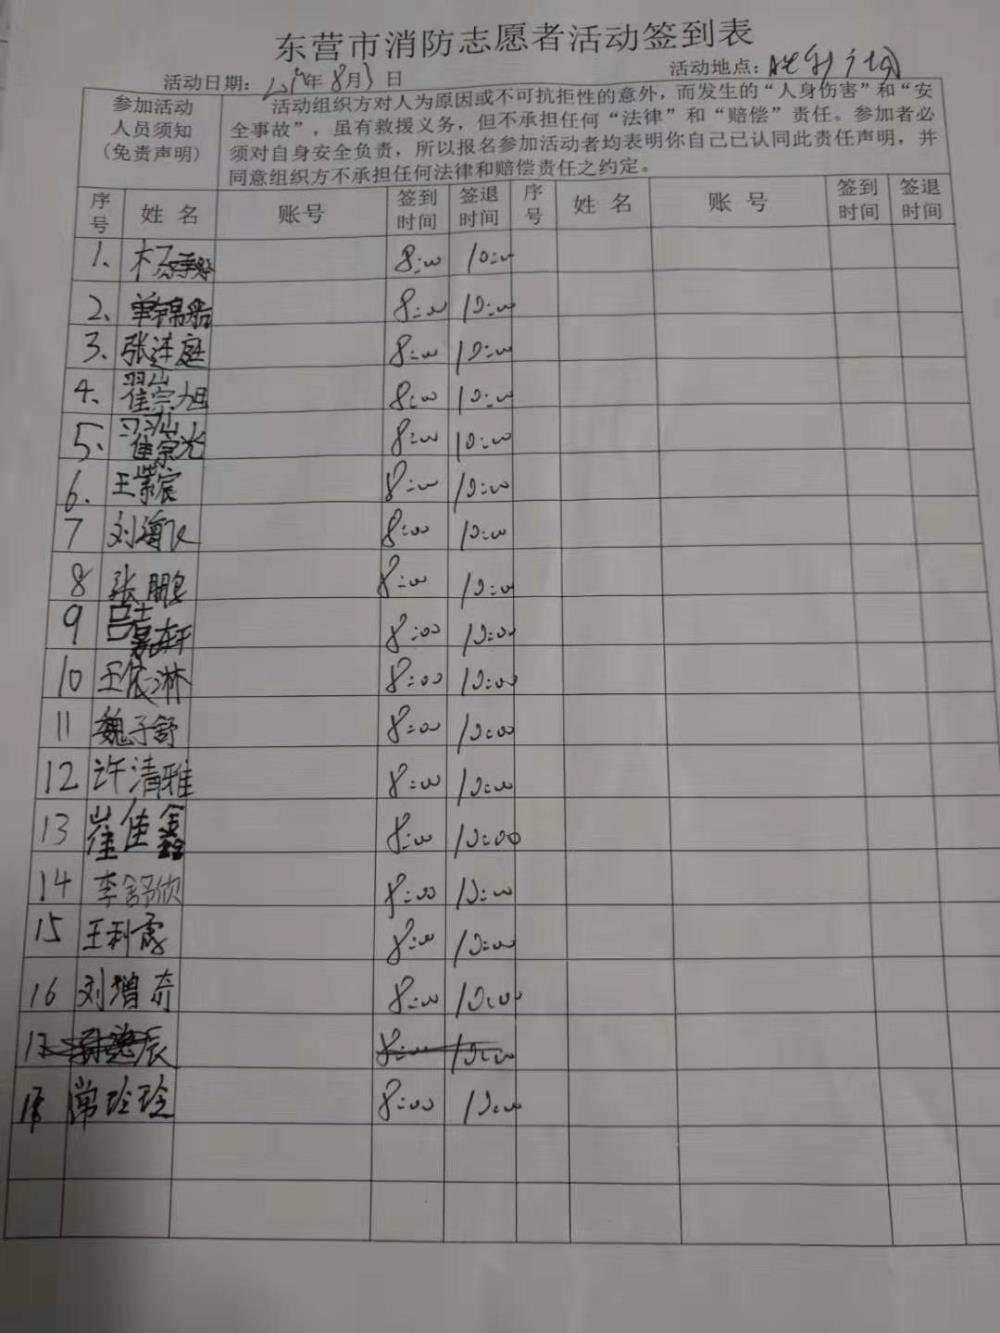 东营市消防志愿者活动签到表
活动日期: 年 8月3日 活动地点: 胜利广场
参加活动
人员须知
(免责声明)
活动组织方对人为原因或不可抗拒性的意外，而发生的“人身伤害”和“安
全事故”，虽有救援义务，但不承担任何“法律”和“赔偿”责任。参加者必
须对自身安全负责，所以报名参加活动者均表明你自己已认同此责任声明，并
同意组织方不承担任何法律和赔偿责任之约定。
序号 姓名 账号 签到时间 签退时间 序号 姓名 账号 签到时间 签退时间
1、 8:00 10:00
2、 单锦船 8:00 10:00
3、 张建庭 8:00 10:00
4、 翟崇旭 8:00 10:00
5、 崔崇光 8:00 10:00
6、 王紫宸 8:00 10:00
7 刘海飞 8:00 10:00
8 张鹏 8:00 10:00
9 吕嘉轩 8:00 10:00
10 王依淋 8:00 10:00
11 魏子舒 8:00 10:00
12 许清雅 8:00 10:00
13 崔佳鑫 8:00 10:00
14 李舒欣 8:00 10:00
15 王利霞 8:00 10:00
16 刘增奇 8:00 10:00
17 辰 8:00 10:00
18 常玲玲 8:00 10:00